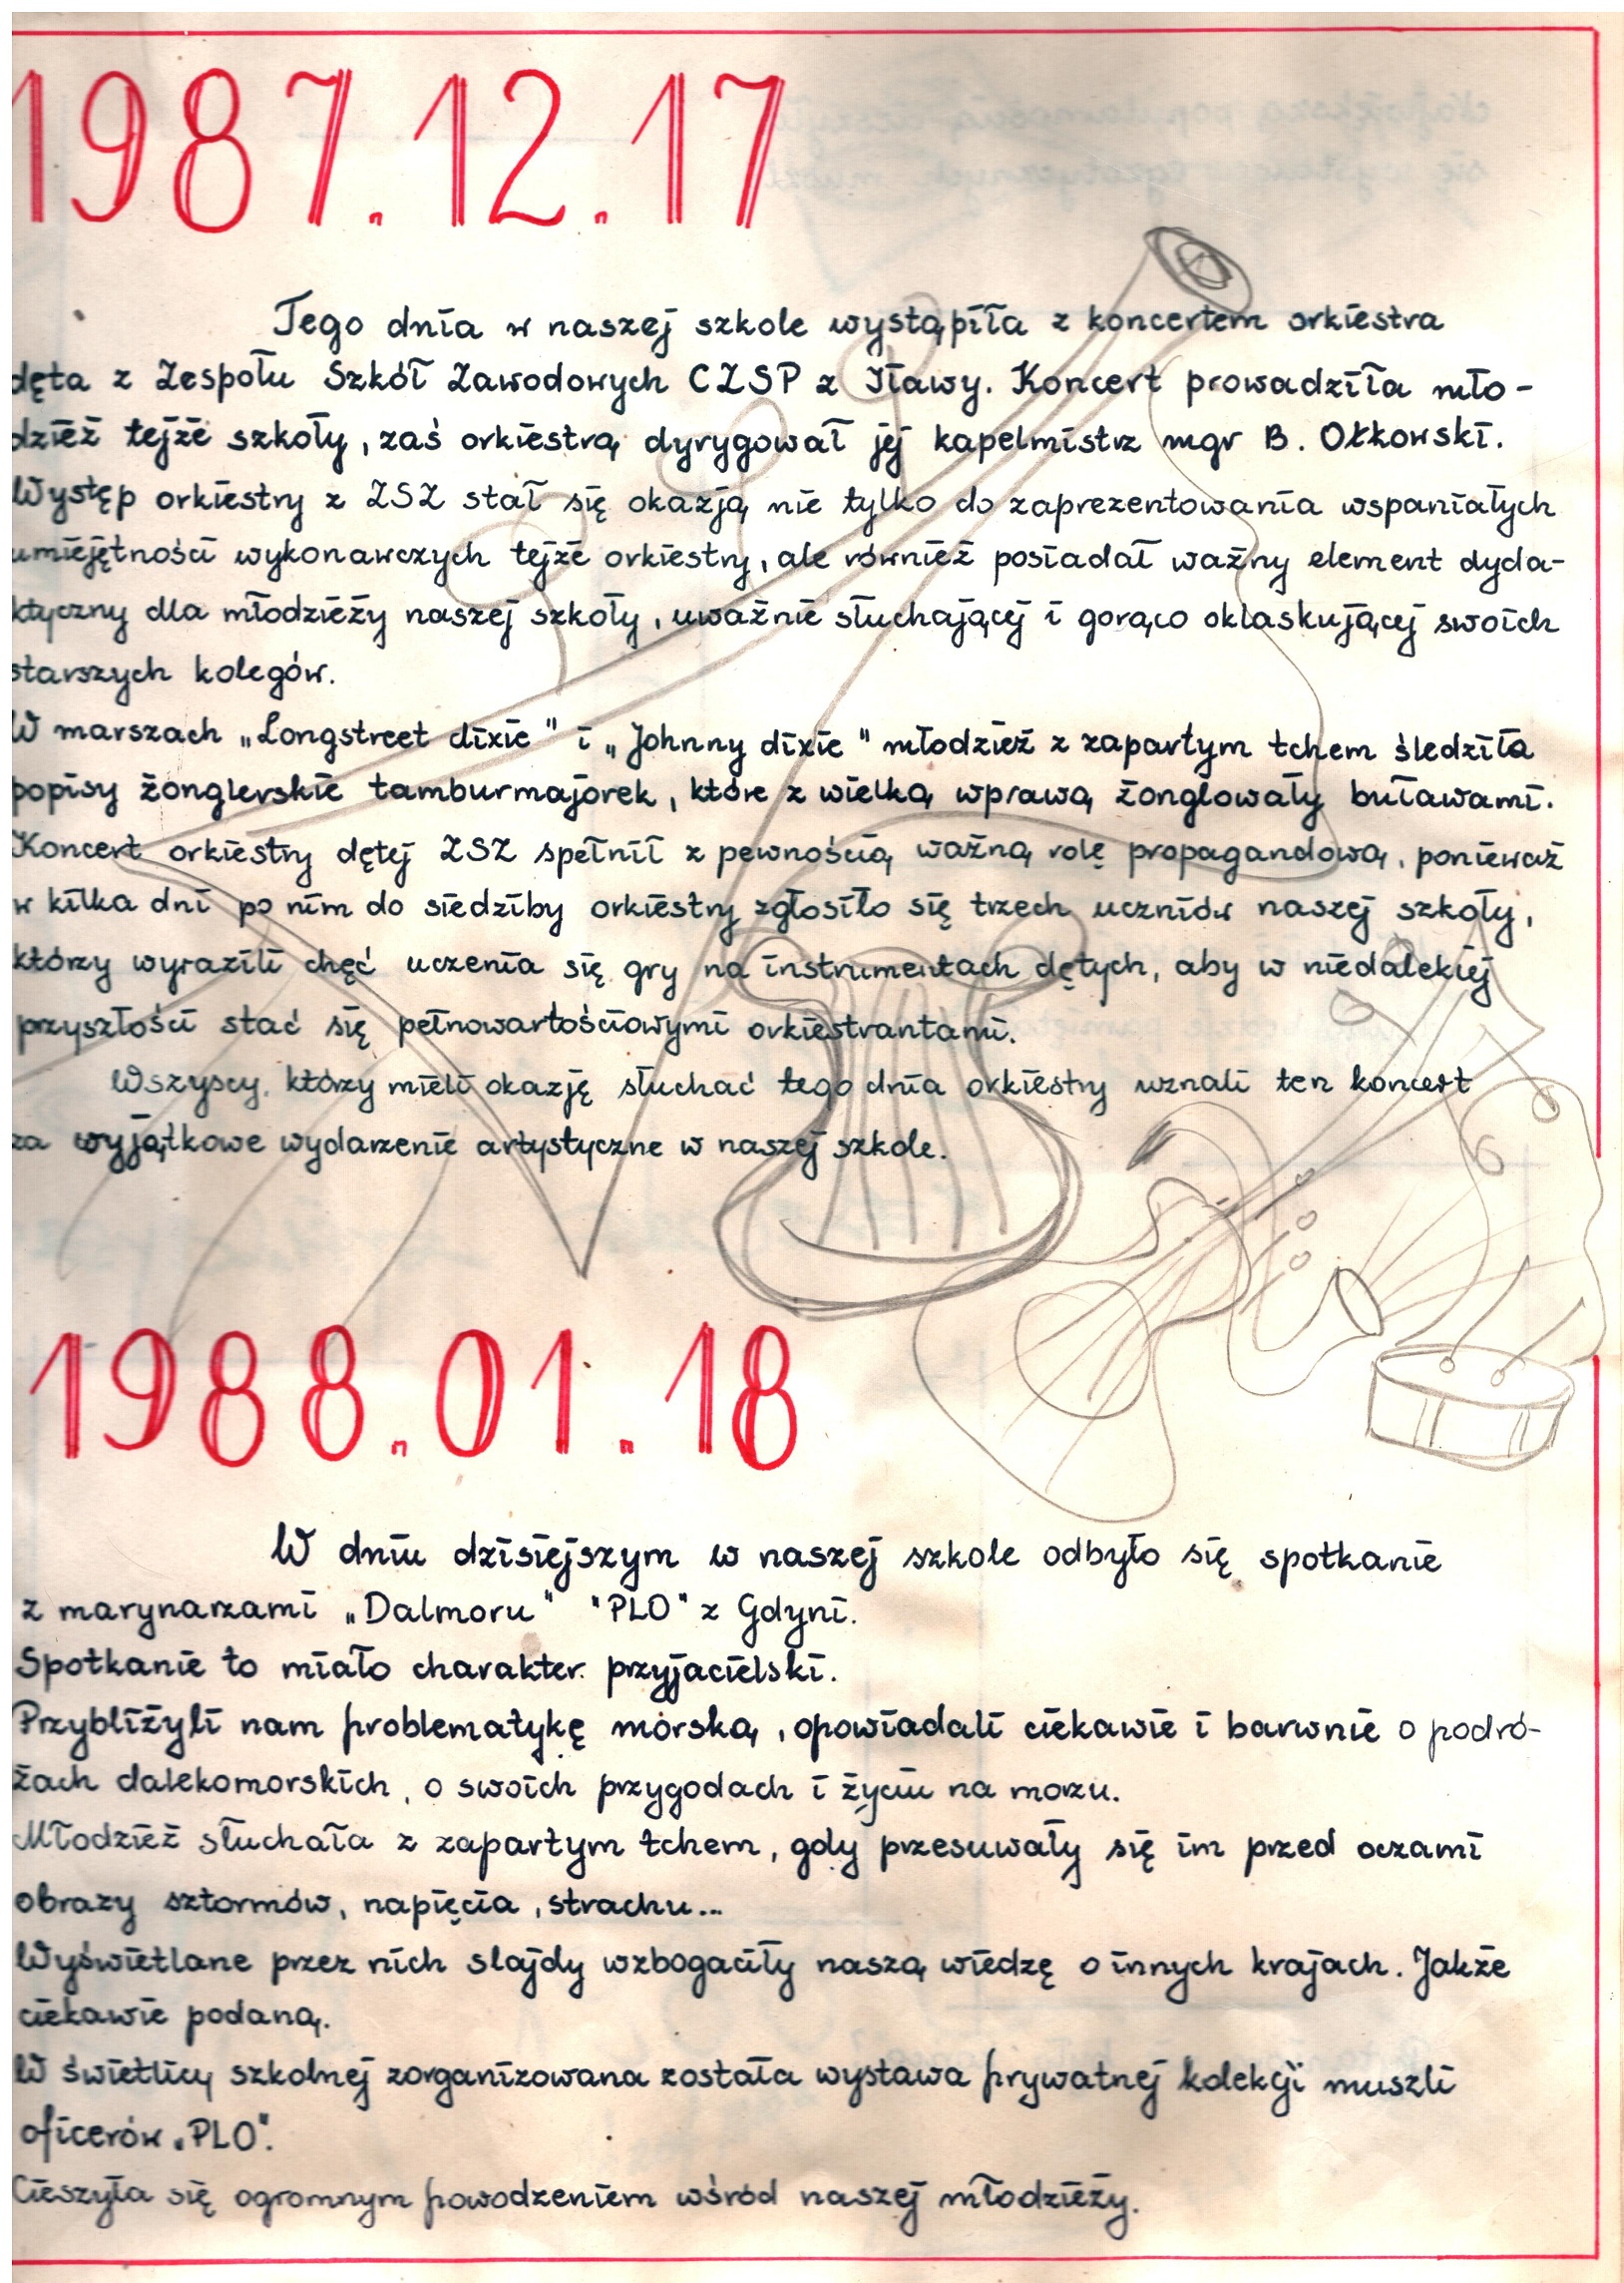 1987.12.17
Tego dnia w naszej szkole wystąpiła z koncertem orkiestra
dęta z Zespołu Szkół Zawodowych CZSP z Iławy. Koncert prowadziła mło-
dzież tejże szkoły, zaś orkiestrą dyrygował jej kapelmistrz mgr B. Ołkowski.
Występ orkiestry z ZSZ stał się okazją nie tylko do zaprezentowania wspaniałych
umiejętności wykonawczych tejże orkiestry, ale również posiadał ważny element dyda-
ktyczny dla młodzieży naszej szkoły, uważnie słuchającej i gorąco oklaskującej swoich
starszych kolegów.
W marszach „Longstreet dixie" i „Johnny dixie" młodzież z zapartym tchem śledziła
popisy żonglerskie tamburmajorek, które z wielką wprawą żonglowały buławami.
Koncert orkiestry dętej ZSZ spełnił z pewnością ważną rolę propagandową, ponieważ
w kilka dni po nim do siedziby orkiestry zgłosiło się trzech uczniów naszej szkoły,
którzy wyrazili chęć uczenia się gry na instrumentach dętych, aby w niedalekiej
przyszłości stać się pełnowartościowymi orkiestrantami.
Wszyscy, którzy mieli okazję słuchać tego dnia orkiestry uznali ten koncert
za wyjątkowe wydarzenie artystyczne w naszej szkole.
1988.01.18
W dniu dzisiejszym w naszej szkole odbyło się spotkanie
z marynarzami „Dalmoru" "PLO" z Gdyni.
Spotkanie to miało charakter przyjacielski.
Przybliżyli nam problematykę morską, opowiadali ciekawie i barwnie o podró-
żach dalekomorskich, o swoich przygodach i życiu na morzu.
Młodzież słuchała z zapartym tchem, gdy przesuwały się im przed oczami
obrazy sztormów, napięcia, strachu...
Wyświetlane przez nich slajdy wzbogaciły naszą wiedzę o innych krajach. Jakże
ciekawie podaną.
W świetlicy szkolnej zorganizowana została wystawa prywatnej kolekcji muszli
oficerów „PLO".
Cieszyła się ogromnym powodzeniem wśród naszej młodzieży.